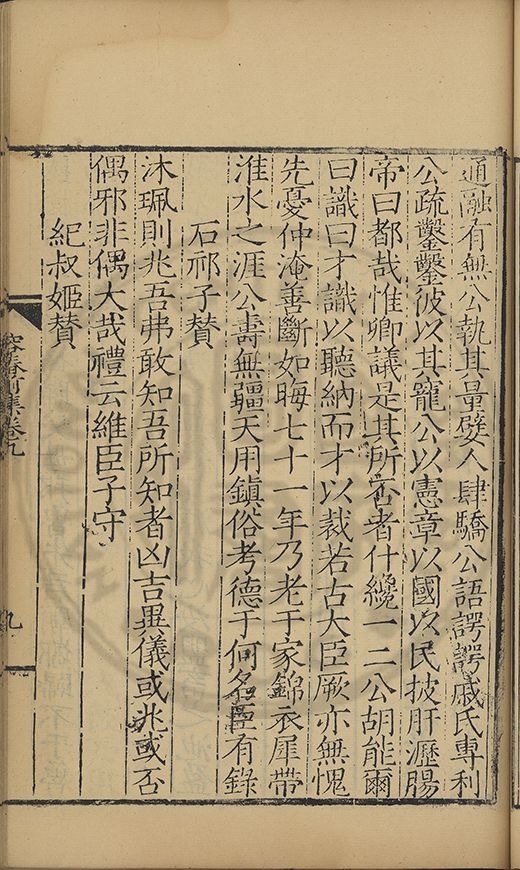 通融有無公執其量嬖人肆驕公語諤諤戚氏專利
公疏鑿鑿彼以其寵公以憲章以國以民披肝瀝腸
帝曰都哉惟卿議是其所否者什纔一二公胡能爾
曰識曰才識以聽納而才以裁若古大臣厥亦無愧
先憂仲淹善斷如晦七十一年乃老于家錦衣犀帶
淮水之涯公壽無疆天用鎮俗考德于何名臣有錄
石祁子贊
沐珮則兆吾弗敢知吾所知者凶吉異儀或兆或否
偶邪非偶大哉禮云維臣子守
紀叔姬贊
集卷九
九